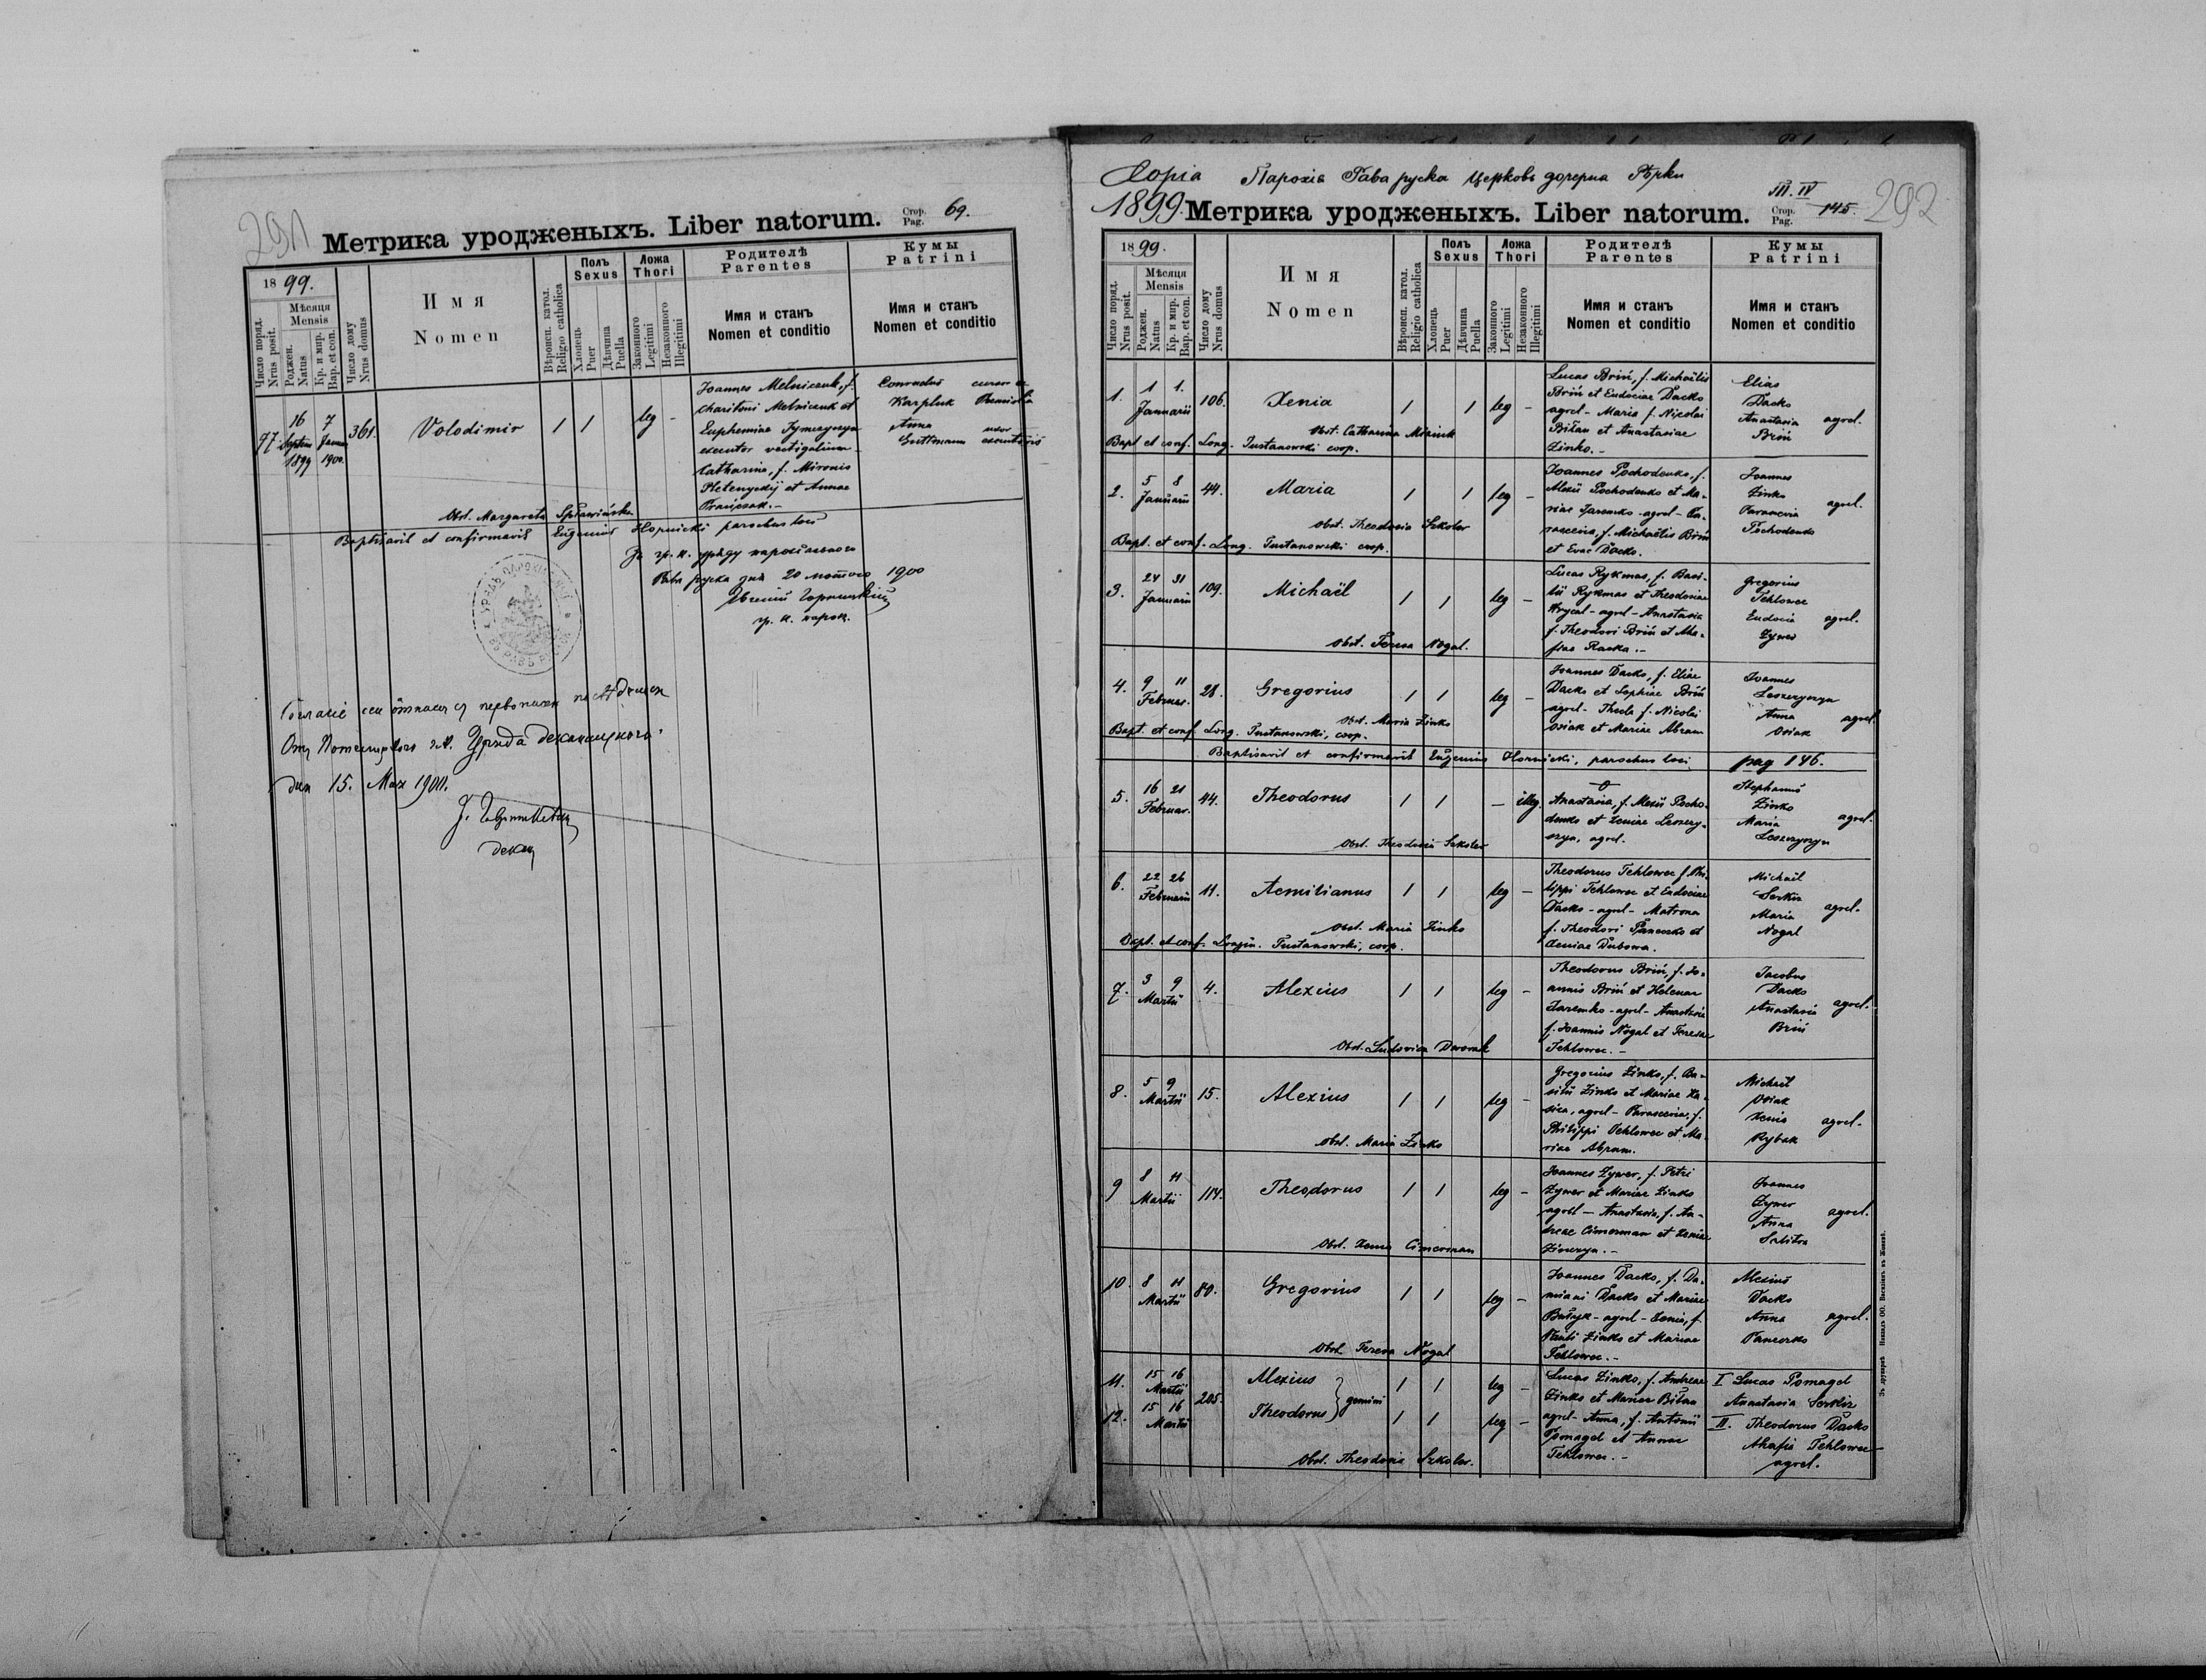 291
Метрика уродженыхъ. Liber natorum. Стор. Pag. 69.
1899.
Число поряд. Nrus posit.
Мѣсяця Mensis
Роджен. Natus
Кр. и мир. Bap. et con.
Число дому Nrus domus
Имя
Nomen
Вѣроисп. катол. Religio catholica
Полъ Sexus
Хлопець Puer
Дѣвчина Puella
Ложа Thori
Законного Legitimi
Незаконного Illegitimi
Родителѣ Parentes
Имя и станъ
Nomen et conditio
Кумы Patrini
Имя и станъ
Nomen et conditio
97. 16 Septem 1899 7 Januar 1900. 361. Volodimir 1 1 leg -
Joannes Melniczuk, f.
Charitoni Melniczuk et
Euphemiae
executor vectigalium -
Catharina, f. Mironis
Pletenyckij et Annae
Conradus
Karpluk
Anna uxor
Guttmann
Obst. Margareta
Baptisavit et confirmavit Eugenius Hornicki parochus loci
За гр. к. уряду парохіального
Рава руска дня 20 лютого 1900
Евгеній Горницкій
гр. к. парох.
дня 15. Марта 1900.
декан
Copia Парохія Рава руска Церковь дочерна Рѣчки
1899. Метрика уродженыхъ. Liber natorum. III. IV Стор. Pag. 145. 292
1899.
Число поряд. Nrus posit.
Мѣсяця Mensis
Роджен. Natus
Кр. и мир. Bap. et con.
Число дому Nrus domus
Имя
Nomen
Вѣроисп. катол. Religio catholica
Полъ Sexus
Хлопець Puer
Дѣвчина Puella
Ложа Thori
Законного Legitimi
Незаконного Illegitimi
Родителѣ Parentes
Имя и станъ
Nomen et conditio
Кумы Patrini
Имя и станъ
Nomen et conditio
1. 1 1. Januarii 106. Xenia 1 1 leg -
Lucas Briń, f. Michaëlis
Briń et Eudociae Dacko
agrel - Maria f. Nicolai
Biłan et Anastasiae
Zinko. -
Elias
Dacko
Anastasia agrel.
Briń
Obst. Catharina
Bapt et conf. Long. Pustanowski coop.
2. 5 8 Januarii 44. Maria 1 1 leg -
Joannes Pochodenko, f.
Alexii Pochodenko et Ma-
riae Jaremko - agrel - Pa-
rascevia, f. Michaëlis Briń
et Evae Dacko.
Joannes
Zinko
Parascevia agrel.
Pochodenko
Obst. Theodosia Szkolar
Bapt. et conf. Long. Pustanowski coop.
3. 24 31 Januarii 109. Michaël 1 1 leg -
Lucas Rykmas, f. Basi-
lii Rykmas et Theodosiae
Hrycal - agrel - Anastasia
f. Theodori Briń et Aha-
fiae Raska. -
Gregorius
Tehlowec
Eudocia agrel.
Zywer
Obst. Teresa Nogal.
4. 9 11 Februar. 28. Gregorius 1 1 leg -
Joannes Dacko, f. Eliae
Dacko et Sophiae Briń
agrel - Thecla f. Nicolai
Osiak et Mariae Abram
Joannes
Leszczyszyn
Anna agrel.
Osiak
Obst. Maria Zinko
Bapt. et conf. Long. Pustanowski, coop.
Baptisavit et confirmavit Eugenius Hornicki, parochus loci pag 146.
5. 16 21 Februar. 44. Theodorus 1 1 - illeg.
Anastasia, f. Alexii Pocho-
denko et Xeniae Leszczy-
szyn, agrel.
Stephanus
Zinko
Maria agrel.
Leszczyszyn
Obst. Theodosia Szkolar
6. 22 26 Februarii 11. Aemilianus 1 1 leg -
Theodorus Tehlowec f. Phi-
lippi Tehlowec et Eudociae
Dacko - agrel - Matrona
f. Theodori Panczko et
Xeniae Dubowa.
Michaël
Serkiz
Maria agrel.
Nogal
Obst. Maria Zinko
Bapt. et conf. Longin. Pustanowski, coop.
7. 3 9 Martii 4. Alexius 1 1 leg -
Theodorus Briń, f. Jo-
annis Briń et Helenae
Jaremko - agrel - Anastasia
f. Joannis Nogal et Teresae
Tehlowec. -
Jacobus
Dacko
Anastasia agrel.
Briń
Obst. Ludovica Dwornik
8. 5 9 Martii 15. Alexius 1 1 leg -
Gregorius Zinko, f. Ba-
silii Zinko et Mariae
agrel - Parascevia, f.
Philippi Tehlowec et Ma-
riae Abram.
Michaël
Osiak
Xenia agrel.
Rybak
Obst. Maria Zinko
9 8 11 Martii 114. Theodorus 1 1 leg -
Joannes Zywer, f. Petri
Zywer et Mariae Zinko
agrel - Anastasia, f. An-
dreae Cimerman et Xeniae
Joannes
Zywer
Anna agrel.
Obst. Xenia Cimerman
10. 8 11 Martii 80. Gregorius 1 1 leg -
Joannes Dacko, f. Da-
miani Dacko et Mariae
agrel - Xenia, f.
Pauli Zinko et Mariae
Tehlowec. -
Alexius
Dacko
Anna agrel.
Panczko
Obst. Teresa Nogal
11. 15 16 Martii 205. Alexius } gemini 1 1 leg -
12. 15 16 Martii Theodorus 1 1 leg -
Lucas Zinko, f. Andreae
Zinko et Mariae Biłan
agrel - Anna, f. Antonii
Pomagel et Annae
Tehlowec. -
I Lucas Pomagel
Anastasia Serkiz
II. Theodorus Dacko
Ahafia Tehlowec
agrel.
Obst. Theodosia Szkolar.
Зъ друкарнѣ Накладъ ОО. Василіянъ въ Жовквѣ.